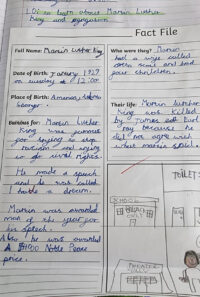 LO: to learn about Martin Luther
King and segregation
Fact File
Full Name: Martin Luther King
Date of Birth: January 1929
on tuesday 12:00
Place of Birth: America, Atlanta
Georgia.
Famous for: Martin Luther
King was famous
for trying to stop
racism and trying
to get civil rights.
He made a speech
and he was called
I have a dream.
Martin was awarded
man of the year for
his speech.
Also he was awarded
a Noble Peace
price.
Who were they? Martin
had a wife called
and had
four children.
Their life: Martin Luther
King was killed
by James Earl
Ray because he
did not agree with
what martin said.
SCHOOL
TOILETS
THEATER